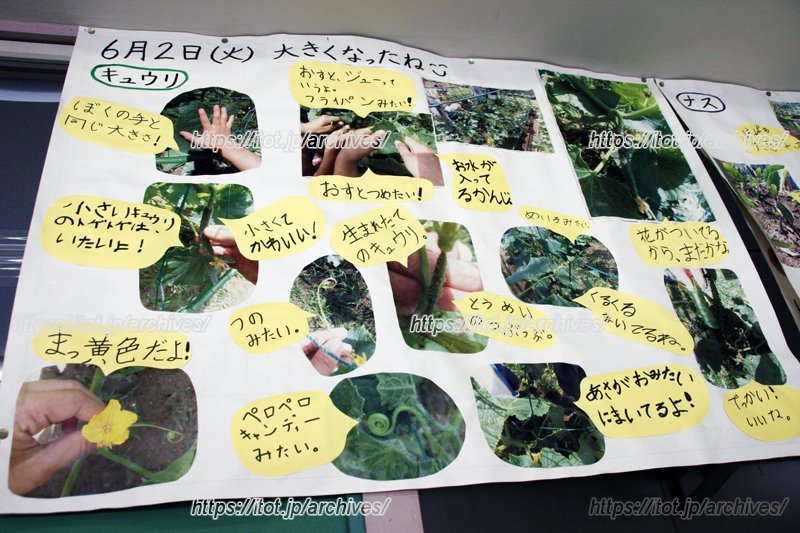 6月2日(火) 大きくなったね
キュウリ
ナス
ぼくの手と
同じ大きさ!
おすと、ジューって
いうよ。
フライパンみたい!
おすとつめたい!
お水が
入って
るかんじ
小さいキュウリ
のトゲトゲは、
いたいよ!
小さくて
かわいい!
生まれたて
のキュウリ
めいろみたい
花がついてる
から、まだかな
つの
みたい。
とうめい
くるくる
まいてるね。
まっ黄色だよ!
ペロペロ
キャンディー
みたい。
あさがおみたい
にまいてるよ!
でっかい!
いいね。
https://itot.jp/archives/
https://itot.jp/archives/
https://itot.jp/archives/
https://itot.jp/archives/
https://itot.jp/archives/
https://itot.jp/archives/
https://itot.jp/archives/